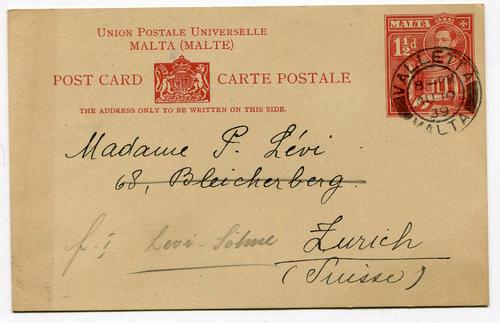 UNION POSTALE UNIVERSELLE
MALTA (MALTE)
POST CARD CARTE POSTALE
THE ADDRESS ONLY TO BE WRITTEN ON THIS SIDE.
MALTA
1½d
VALLETTA
39
MALTA
Madame P. Lévi
68, Bleicherberg.
Levi-Söhne
Zurich
(Suisse)